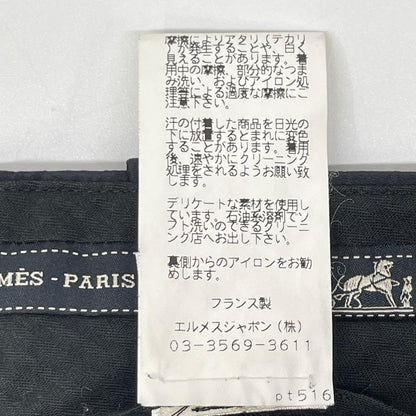 摩擦によりアタリ（テカリ
）が発生することや、白く
見えることがあります。着
用中の摩擦、部分的なつま
み洗い、およびアイロン処
理等による過度な摩擦にご
注意下さい。
汗の付着した商品を日光の
下に放置するとまれに変色
することがあります。着用
後、速やかにクリーニング
処理をされるようお願い致
します。
デリケートな素材を使用し
ています。石油系溶剤でソ
フト洗いのできるクリーニ
ング店へお出し下さい。
裏側からのアイロンをお勧
めします。
フランス製
エルメスジャポン（株）
03-3569-3611
pt516
MÈS-PARIS